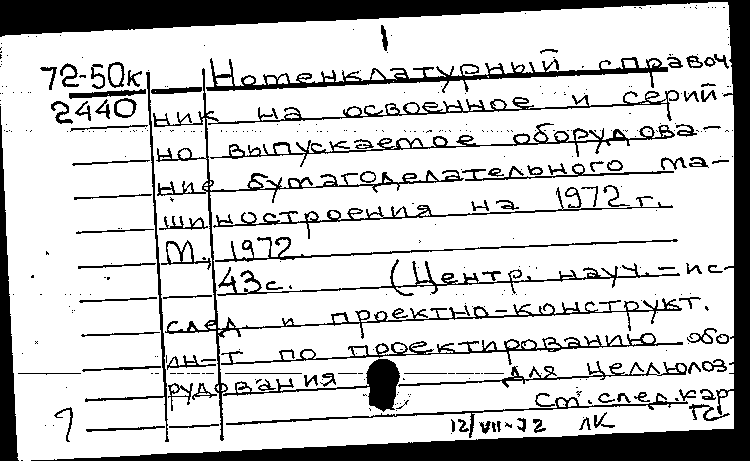 1
72-50к Номенклатурный справоч-
2440 ник на освоенное и серий-
но выпускаемое оборудова-
ние бумагоделательного ма-
шиностроения на 1972 г.
М., 1972.
43с. (Центр. науч.-ис-
след и проектно-конструкт.
ин-т по проектированию обо-
рудования для целлюлоз-
Ст. след. кар
12/VII-72 ЛК